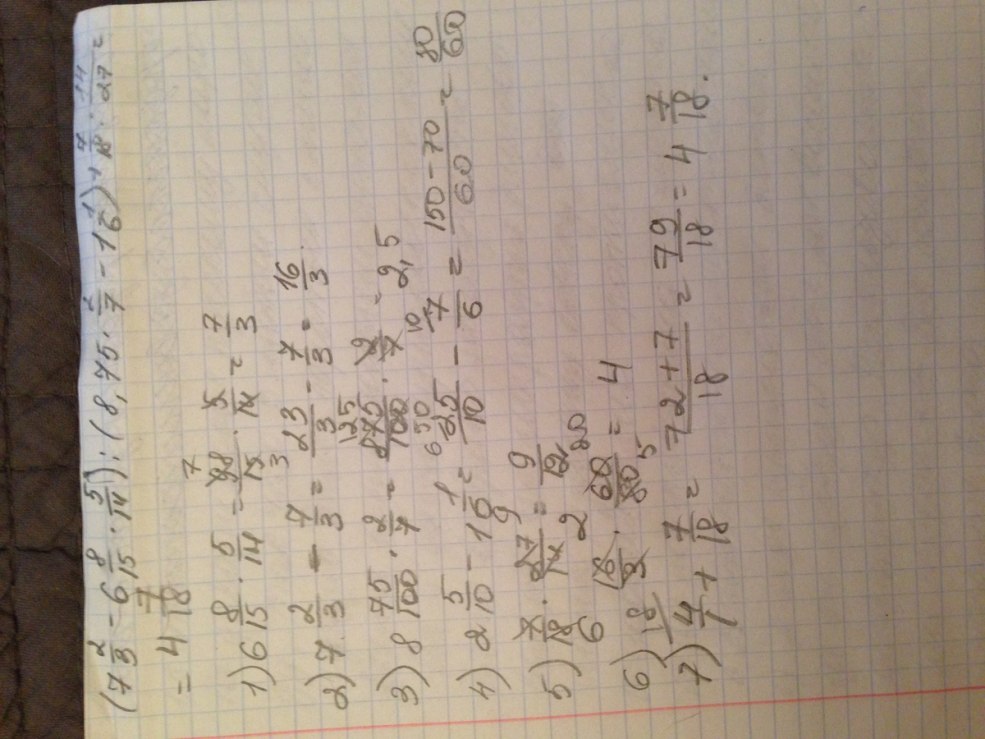 (7 2/3 - 6 8/15 · 5/14) : (8,75 · 2/7 - 1 1/6) + 7/18 : 14/27 =
= 4 7/18
1) 6 8/15 · 5/14 = 98/15 · 5/14 = 7/3
2) 7 2/3 - 7/3 = 23/3 - 7/3 = 16/3
3) 8 75/100 · 2/7 = 875/100 · 2/7 = 2,5
4) 2 5/10 - 1 1/6 = 25/10 - 7/6 = (150-70)/60 = 80/60
5) 7/18 · 27/14 = 9/12
6) 16/3 · 60/80 = 4
7) 4/1 + 7/18 = (72+7)/18 = 79/18 = 4 7/18.